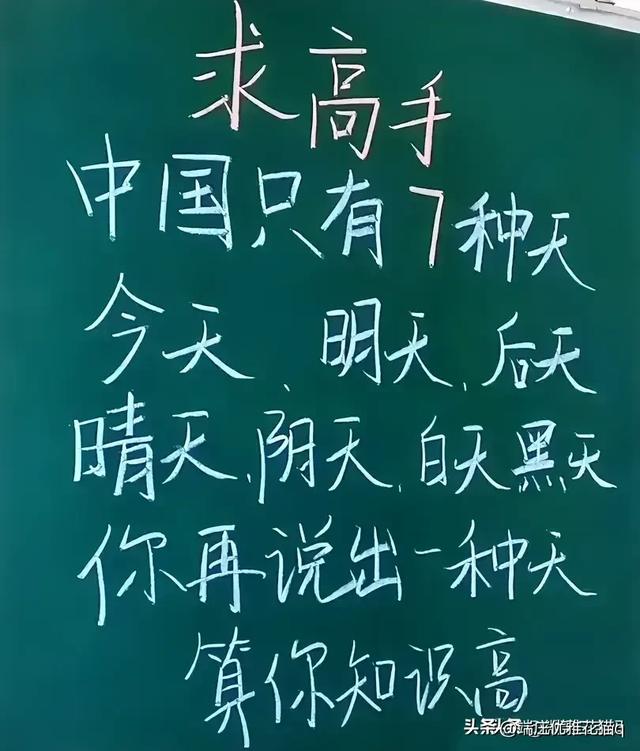 求高手
中国只有7种天
今天、明天、后天
晴天、阴天、白天黑天
你再说出一种天
算你知识高